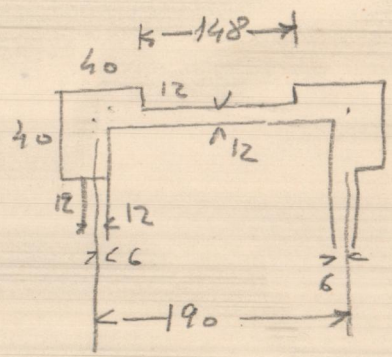 148
40
12
40
12
12 12
6
6
190